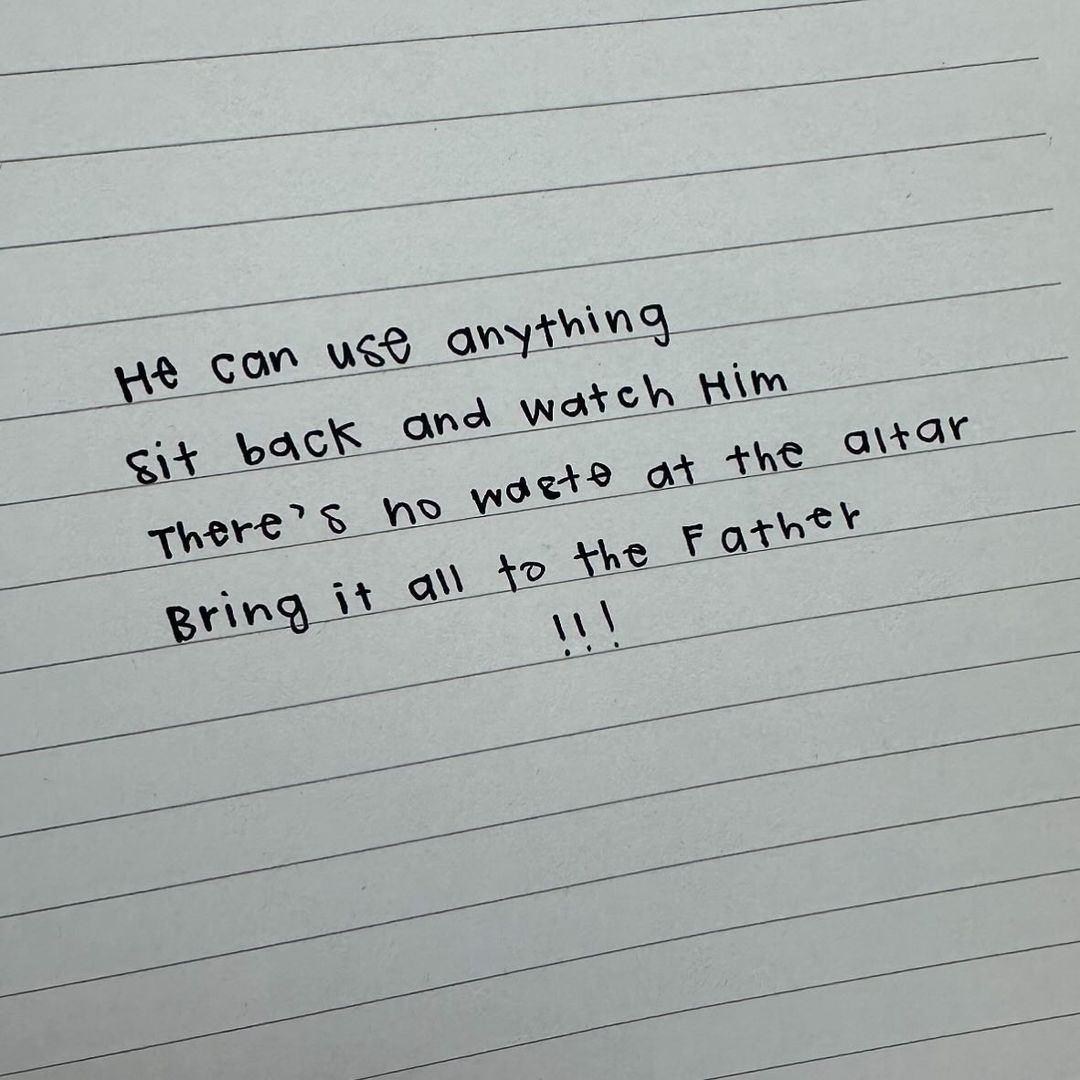 He can use anything
sit back and watch Him
There's no waste at the altar
Bring it all to the Father
!!!